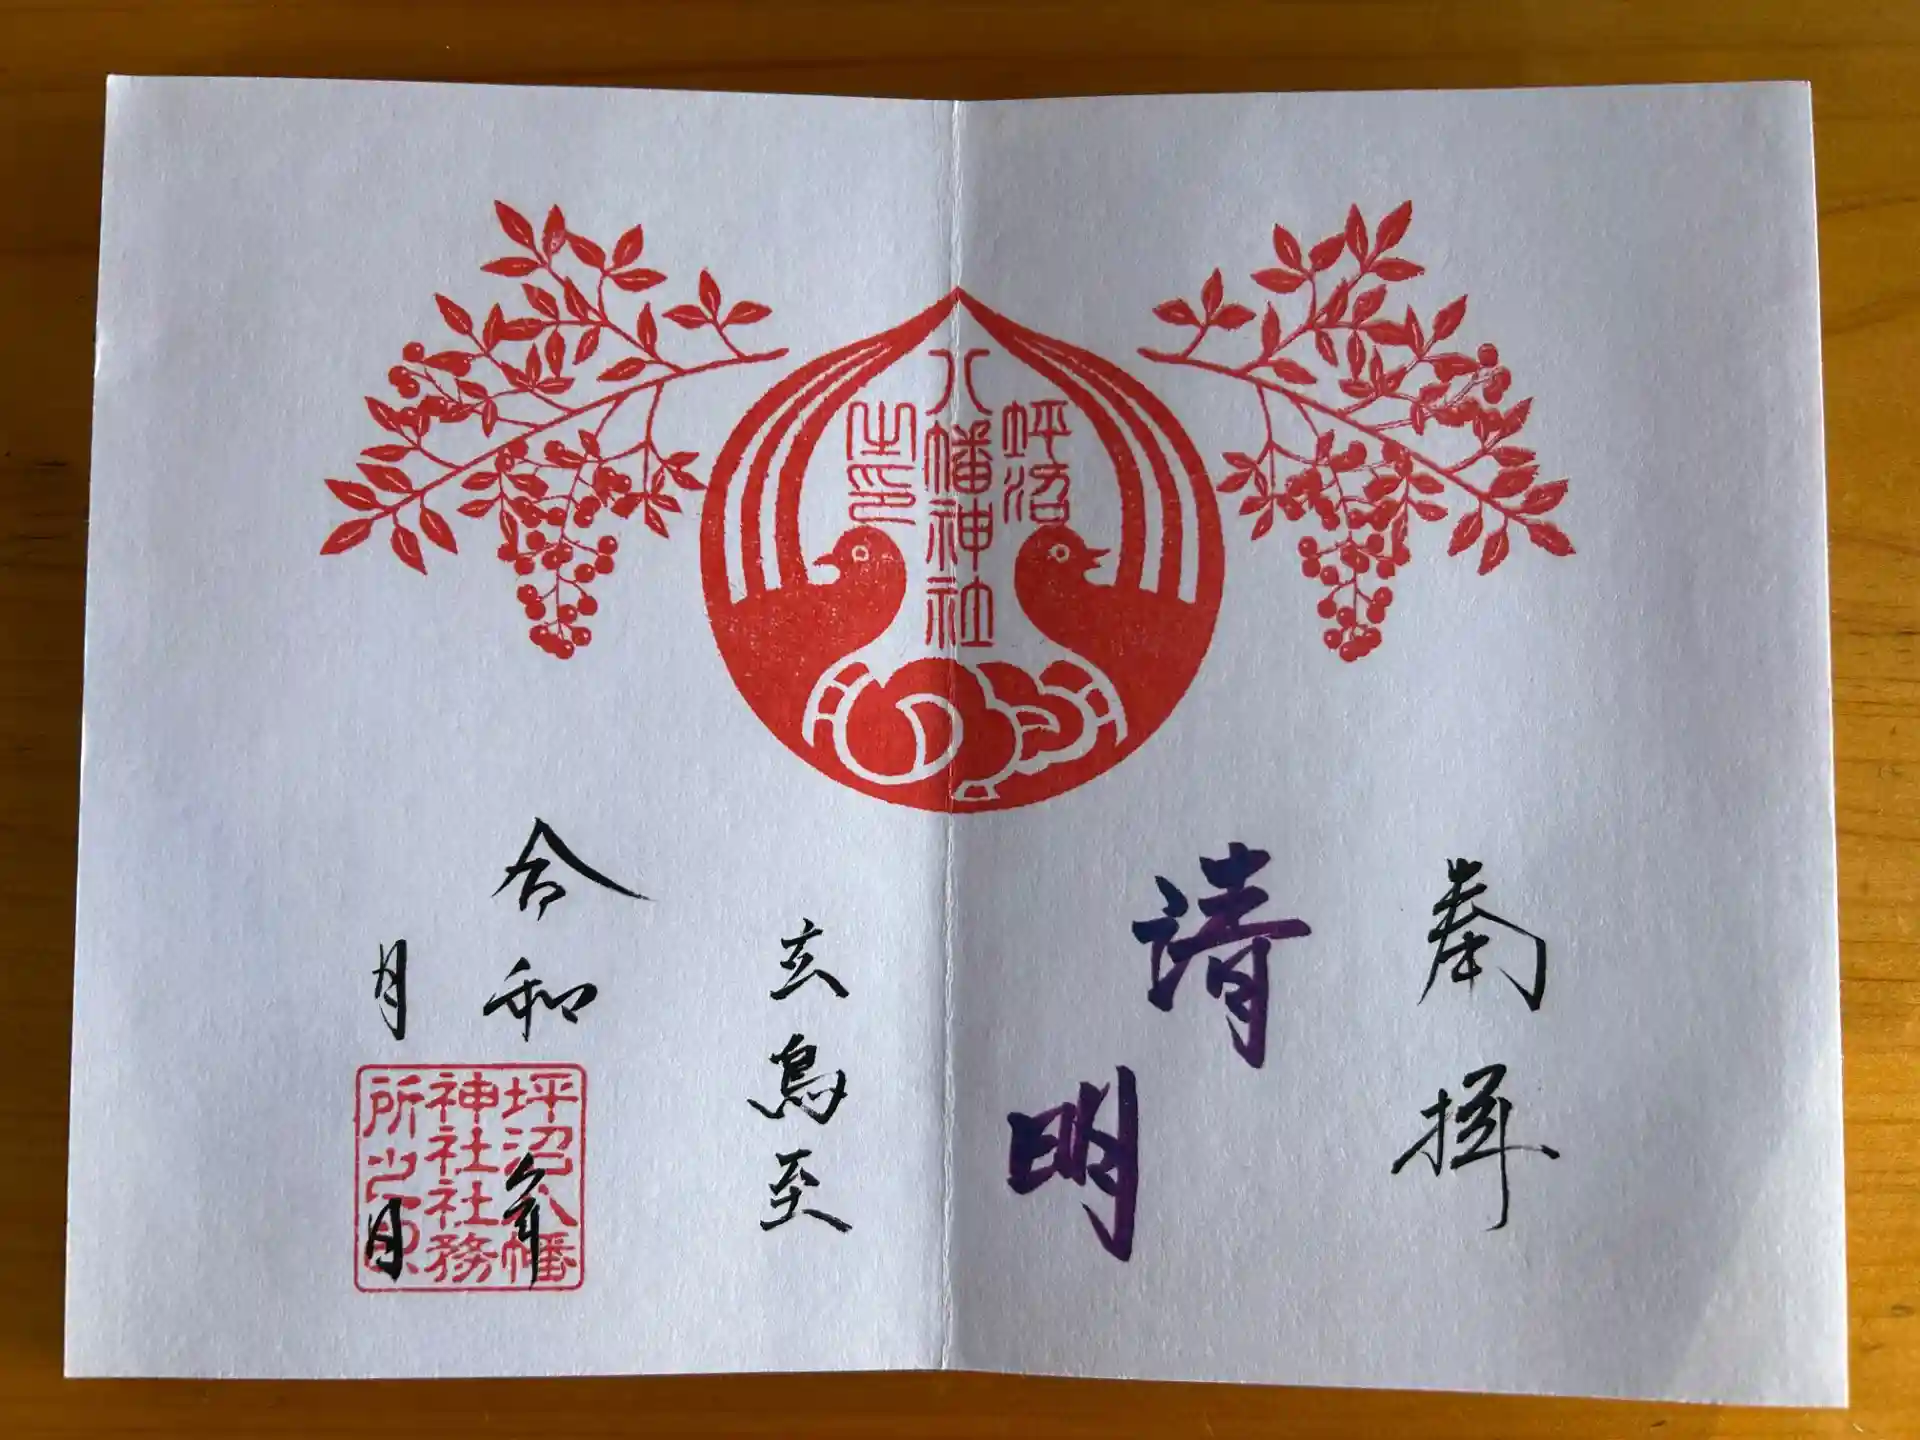 坪沼
八幡神社
之印
奉拝
清明
玄鳥至
令和 年
月 日
坪沼八幡
神社社務
所之印